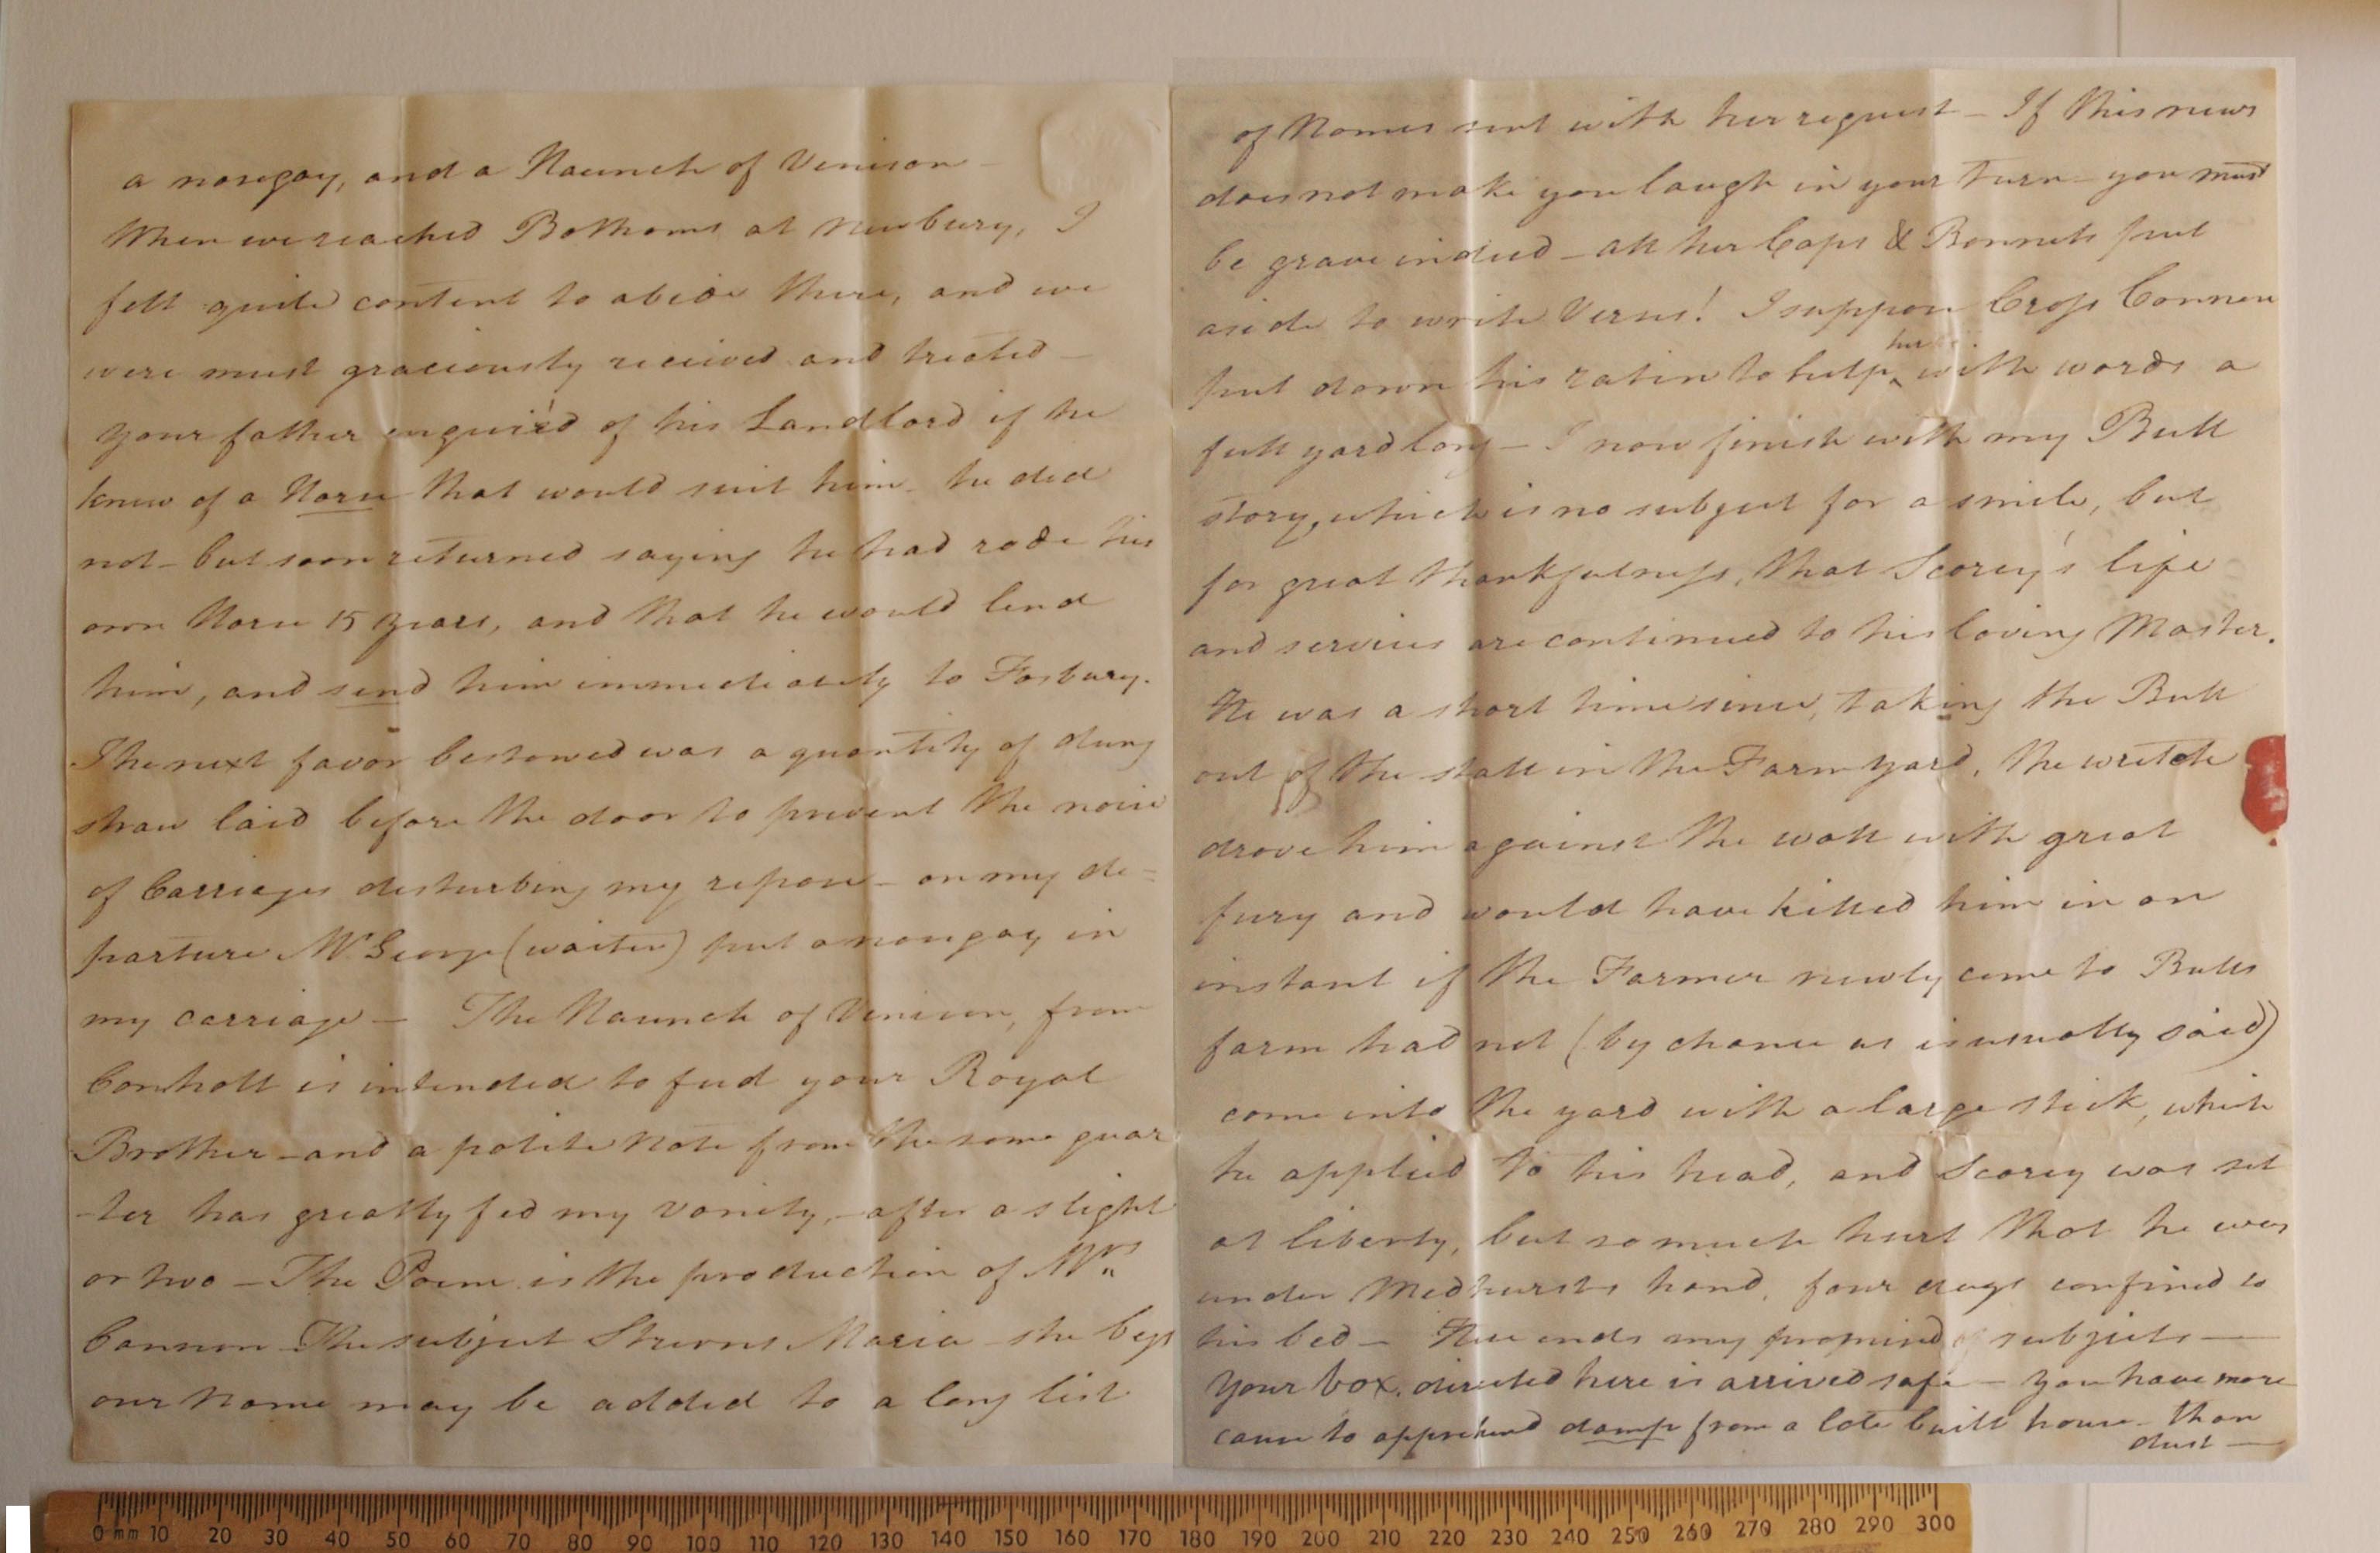 a nosegay, and a Haunch of Venison –
When we reached Bothams at Newbury, I
felt quite content to abide there, and we
were most graciously received and treated –
your father enquired of his Landlord if he
knew of a Horse that would suit him – he did
not – but soon returned saying he had rode his
own Horse 15 years, and that he would lend
him, and send him immediately to Fosbury.
The next favor bestowed was a quantity of dung
straw laid before the door to prevent the noise
of Carriages disturbing my repose – on my de=
parture Mr George (waiter) put a nosegay in
my carriage – The Haunch of Venison, from
Conholt is intended to feed your Royal
Brother – and a polite Note from the same quar
-ter has greatly fed my vanity, – after a slight
or two – The Poem is the production of Mrs
Cannon The subject Sterns Maria – she begs
our name may be added to a long list
of Names sent with her request – If this news
does not make you laugh in your turn – you must
be grave indeed – all her Caps & Bonnets put
aside to write Verses! I suppose Cross Cannon
put down his to help her with words a
full yard long – I now finish with my Bull
story, which is no subject for a smile, but
for great thankfulness, that Scorey's life
and services are continued to his loving Master.
He was a short time since, taking the Bull
out of the stall in the Farm yard, the wretch
drove him against the wall with great
fury and would have killed him in an
instant if the Farmer newly come to Bulls
farm had not (by chance as is usually said)
come into the yard with a large stick, which
he applied to his head, and Scorey was set
at liberty, but so much hurt that he was
under Medhursts hand, four days confined to
his bed – Here ends my promised subjects –
Your box, directed here is arrived safe – you have more
cause to apprehend damp from a late built house – than
dust –
0 mm 10 20 30 40 50 60 70 80 90 100 110 120 130 140 150 160 170 180 190 200 210 220 230 240 250 260 270 280 290 300